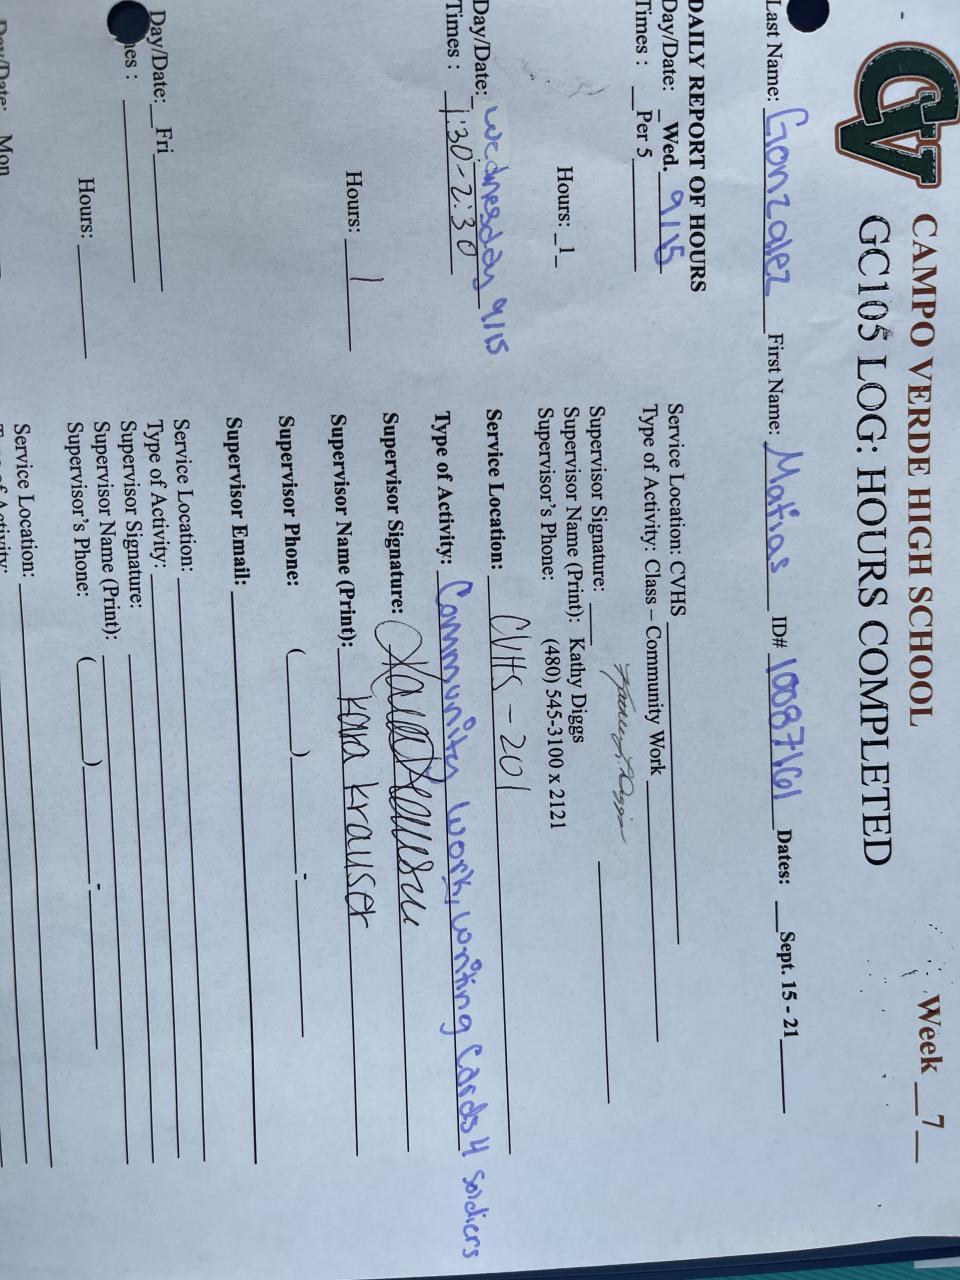 CV
CAMPO VERDE HIGH SCHOOL
Week 7
GC105 LOG: HOURS COMPLETED
Last Name: Gonzalez First Name: Matias ID# 10087161 Dates: Sept. 15 - 21
DAILY REPORT OF HOURS
Day/Date: Wed. 9/15
Times : Per 5
Hours: 1
Service Location: CVHS
Type of Activity: Class – Community Work
Supervisor Signature:
Supervisor Name (Print): Kathy Diggs
Supervisor's Phone: (480) 545-3100 x 2121
Day/Date: Wednesday 9/15
Times : 1:30-2:30
Hours: 1
Service Location: CVHS - 201
Type of Activity: Community work, writing cards 4 soldiers
Supervisor Signature:
Supervisor Name (Print): Kara Krauser
Supervisor Phone: ( ) -
Supervisor Email:
Day/Date: Fri
Hours:
Service Location:
Type of Activity:
Supervisor Signature:
Supervisor Name (Print):
Supervisor's Phone: ( ) -
Day/Date: Mon
Service Location:
Type of Activity: